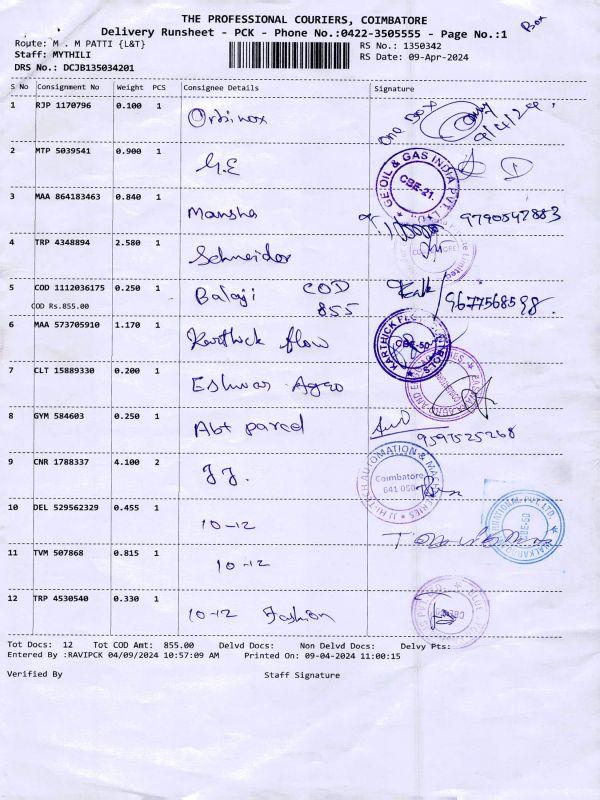 Box
THE PROFESSIONAL COURIERS, COIMBATORE
Delivery Runsheet - PCK - Phone No.:0422-3505555 - Page No.:1
Route: M . M PATTI {L&T}
RS No.: 1350342
Staff: MYTHILI
RS Date: 09-Apr-2024
DRS No.: DCJB135034201
S No Consignment No Weight PCS Consignee Details Signature
1 RJP 1170796 0.100 1 Orbinox one box 9/4/24
2 MTP 5039541 0.900 1 G.E
GE OIL & GAS INDIA PVT. LTD. CBE-21.
3 MAA 864183463 0.840 1 Mansha 9790542883
4 TRP 4348894 2.580 1 Schneider
5 COD 1112036175 0.250 1 Balaji COD 855 9677568598
COD Rs.855.00
6 MAA 573705910 1.170 1 Karthick flow
KARTHICK CBE-50
7 CLT 15889330 0.200 1 Eshwar Agro
8 GYM 584603 0.250 1 Abt parcel 9597525268
9 CNR 1788337 4.100 2 JJ.
JJ HI-TECH AUTOMATION & Coimbatore 641 050
10 DEL 529562329 0.455 1 10-12
11 TVM 507868 0.815 1 10-12
12 TRP 4530540 0.330 1 10-12 Fashion
Tot Docs: 12 Tot COD Amt: 855.00 Delvd Docs: Non Delvd Docs: Delvy Pts:
Entered By :RAVIPCK 04/09/2024 10:57:09 AM Printed On: 09-04-2024 11:00:15
Verified By Staff Signature